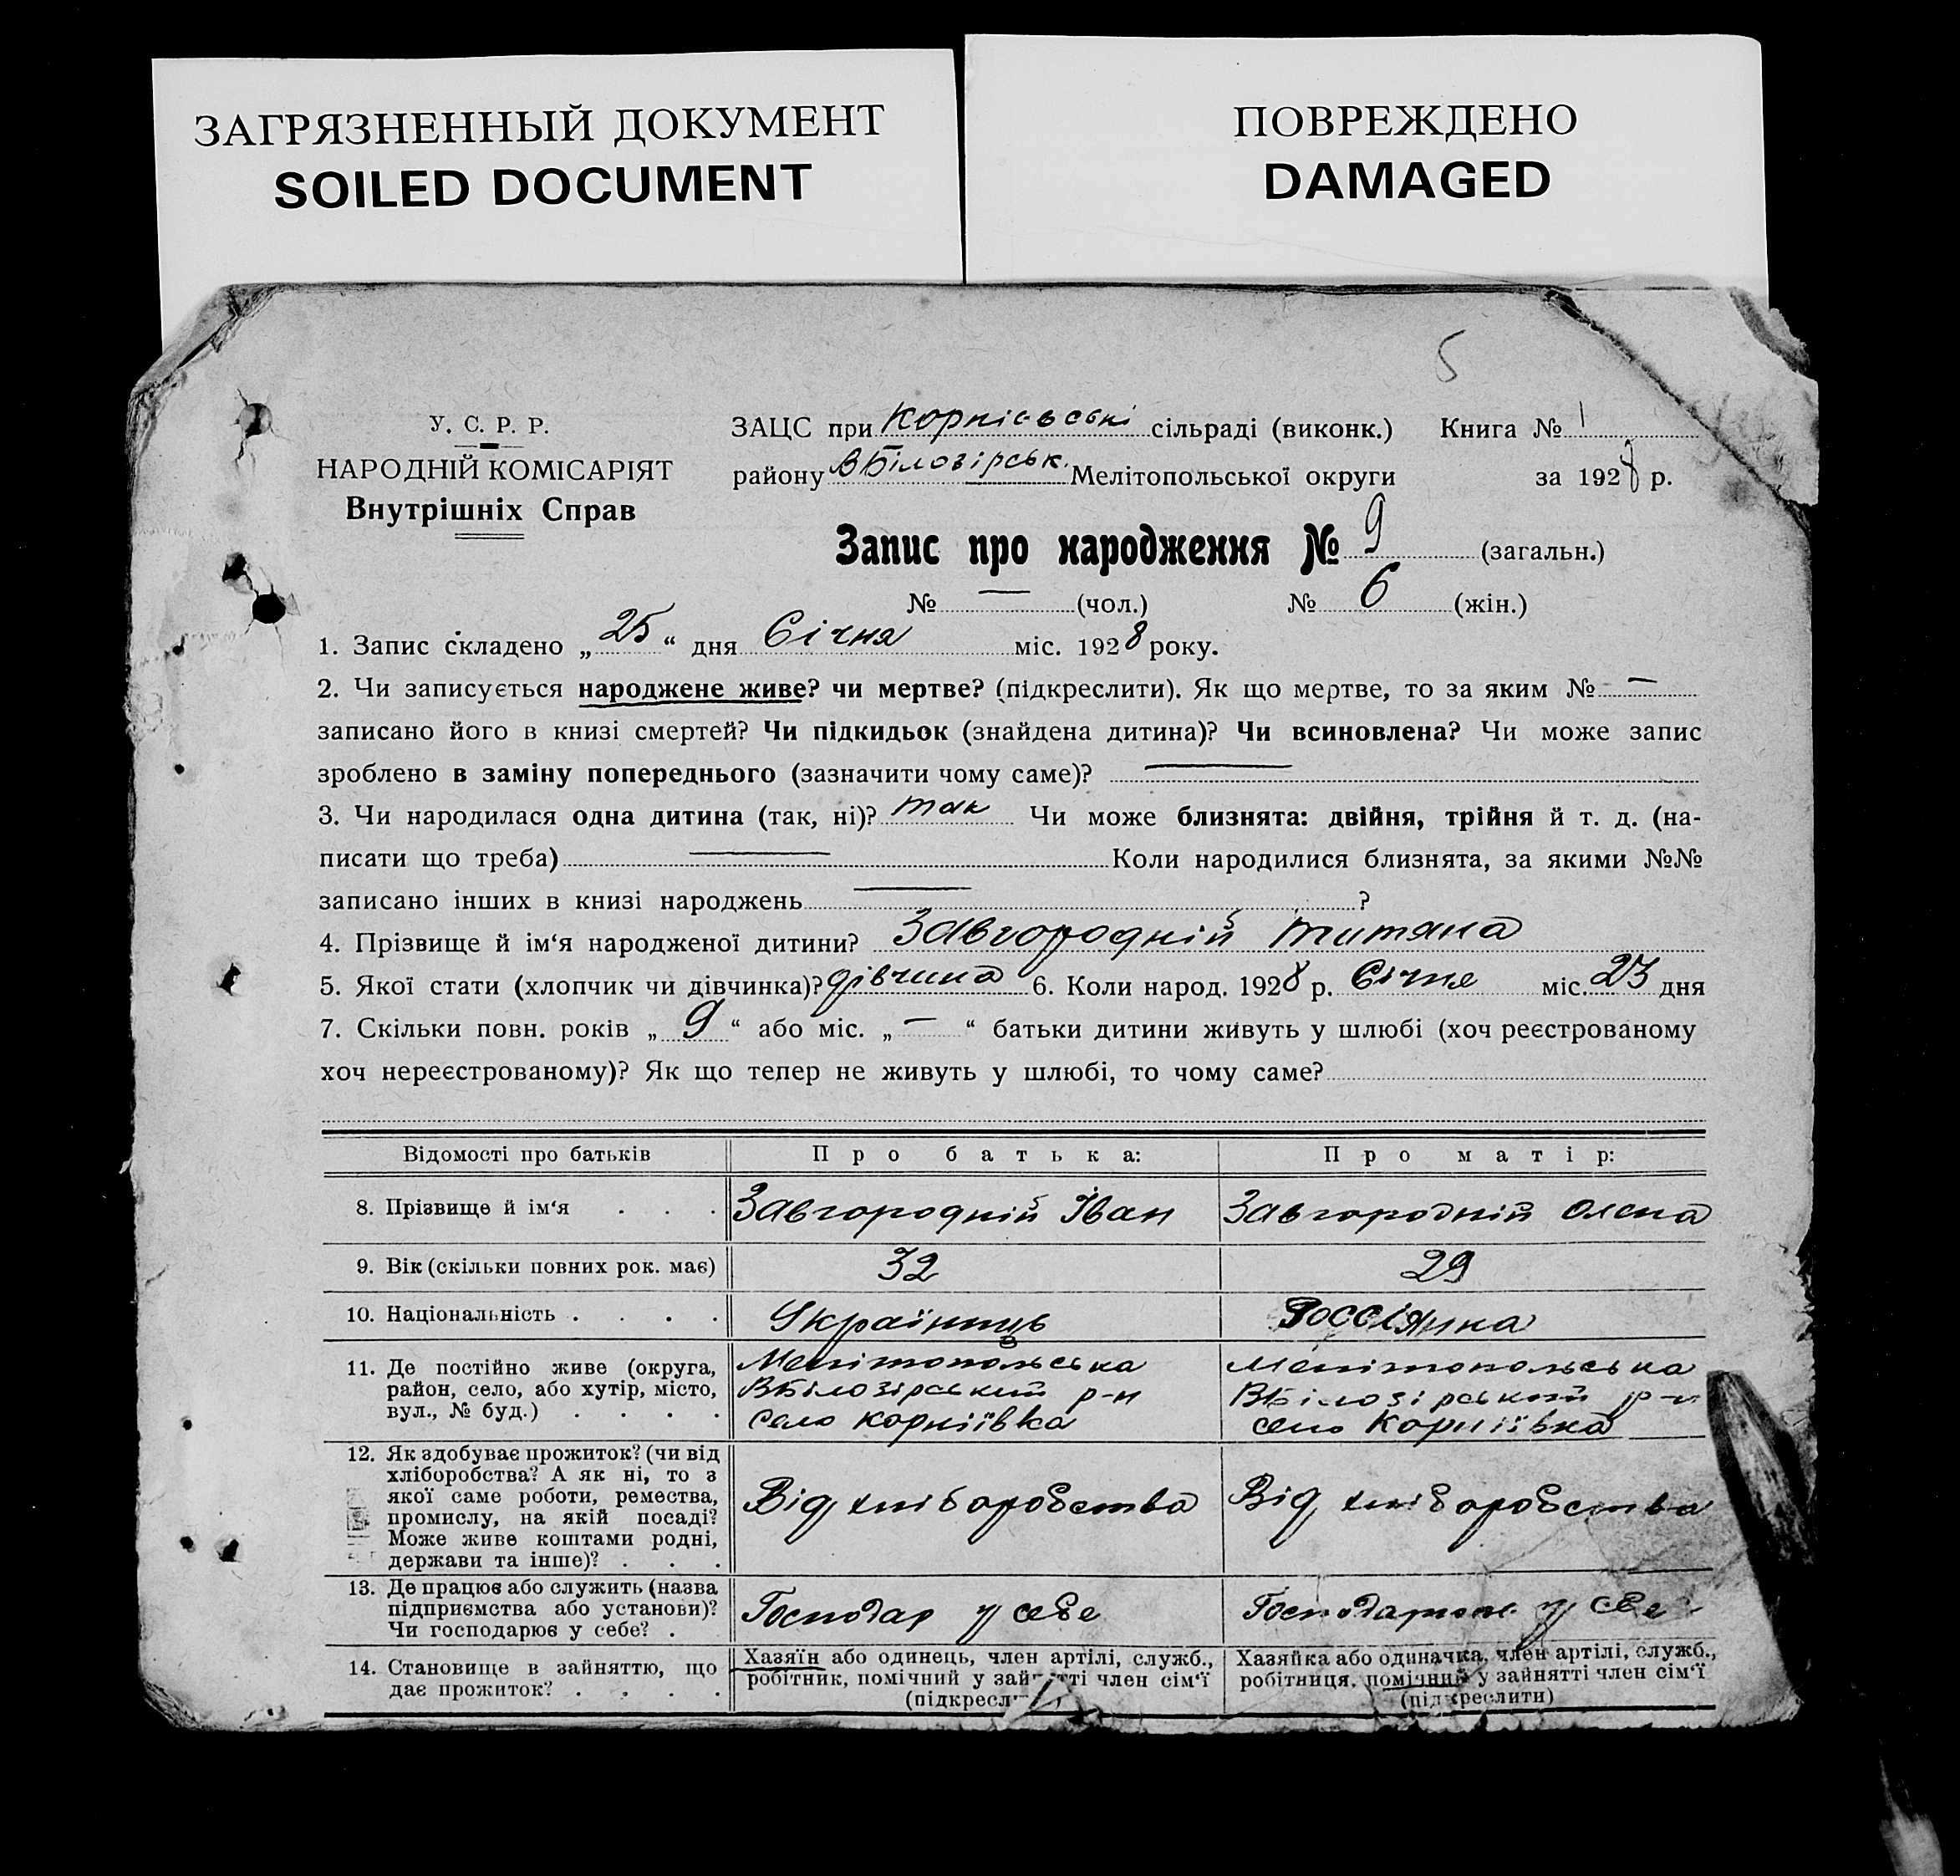 ЗАГРЯЗНЕННЫЙ ДОКУМЕНТ
SOILED DOCUMENT
ПОВРЕЖДЕНО
DAMAGED
5
У. С. Р. Р.
НАРОДНІЙ КОМІСАРІЯТ
Внутрішніх Справ
ЗАЦС при Корніевські сільраді (виконк.) Книга № 1
району ВБілозірськ. Мелітопольської округи за 1928 р.
Запис про народження № 9 (загальн.)
№ — (чол.) № 6 (жін.)
1. Запис складено „ 25 “ дня Січня міс. 1928 року.
2. Чи записується народжене живе? чи мертве? (підкреслити). Як що мертве, то за яким № —
записано його в книзі смертей? Чи підкидьок (знайдена дитина)? Чи всиновлена? Чи може запис
зроблено в заміну попереднього (зазначити чому саме)? —
3. Чи народилася одна дитина (так, ні)? так Чи може близнята: двійня, трійня й т. д. (на-
писати що треба) — Коли народилися близнята, за якими №№
записано інших в книзі народжень — ?
4. Прізвище й ім‘я народженої дитини? Завгородній Титяна
5. Якої стати (хлопчик чи дівчинка)? дівчина 6. Коли народ. 1928 р. Січня міс. 23 дня
7. Скільки повн. років „ 9 “ або міс. „ — “ батьки дитини живуть у шлюбі (хоч реєстрованому
хоч нереєстрованому)? Як що тепер не живуть у шлюбі, то чому саме?
Відомості про батьків Про батька: Про матір:
8. Прізвище й ім‘я . . . Завгородній Іван Завгородній Олена
9. Вік (скільки повних рок. має) 32 29
10. Національність . . . . Українць Россіянка
11. Де постійно живе (округа,
район, село, або хутір, місто,
вул., № буд.) . . . .
Мелітопольська
ВБілозірський р-н
село Корніївка
Мелітопольська
ВБілозірський р-н
село Корніївка
12. Як здобуває прожиток? (чи від
хліборобства? А як ні, то з
якої саме роботи, ремества,
промислу, на якій посаді?
Може живе коштами родні,
держави та інше)? . . .
Від хліборобства
Від хліборобства
13. Де працює або служить (назва
підприємства або установи)?
Чи господарює у себе? .
Господар у себе
у себе
14. Становище в зайняттю, що
дає прожиток? . . . .
Хазяїн або одинець, член артілі, служб.,
робітник, помічний у зайнятті член сім‘ї
(підкреслити)
Хазяйка або одиначка, член артілі, служб.,
робітниця, помічний у зайнятті член сім‘ї
(підкреслити)